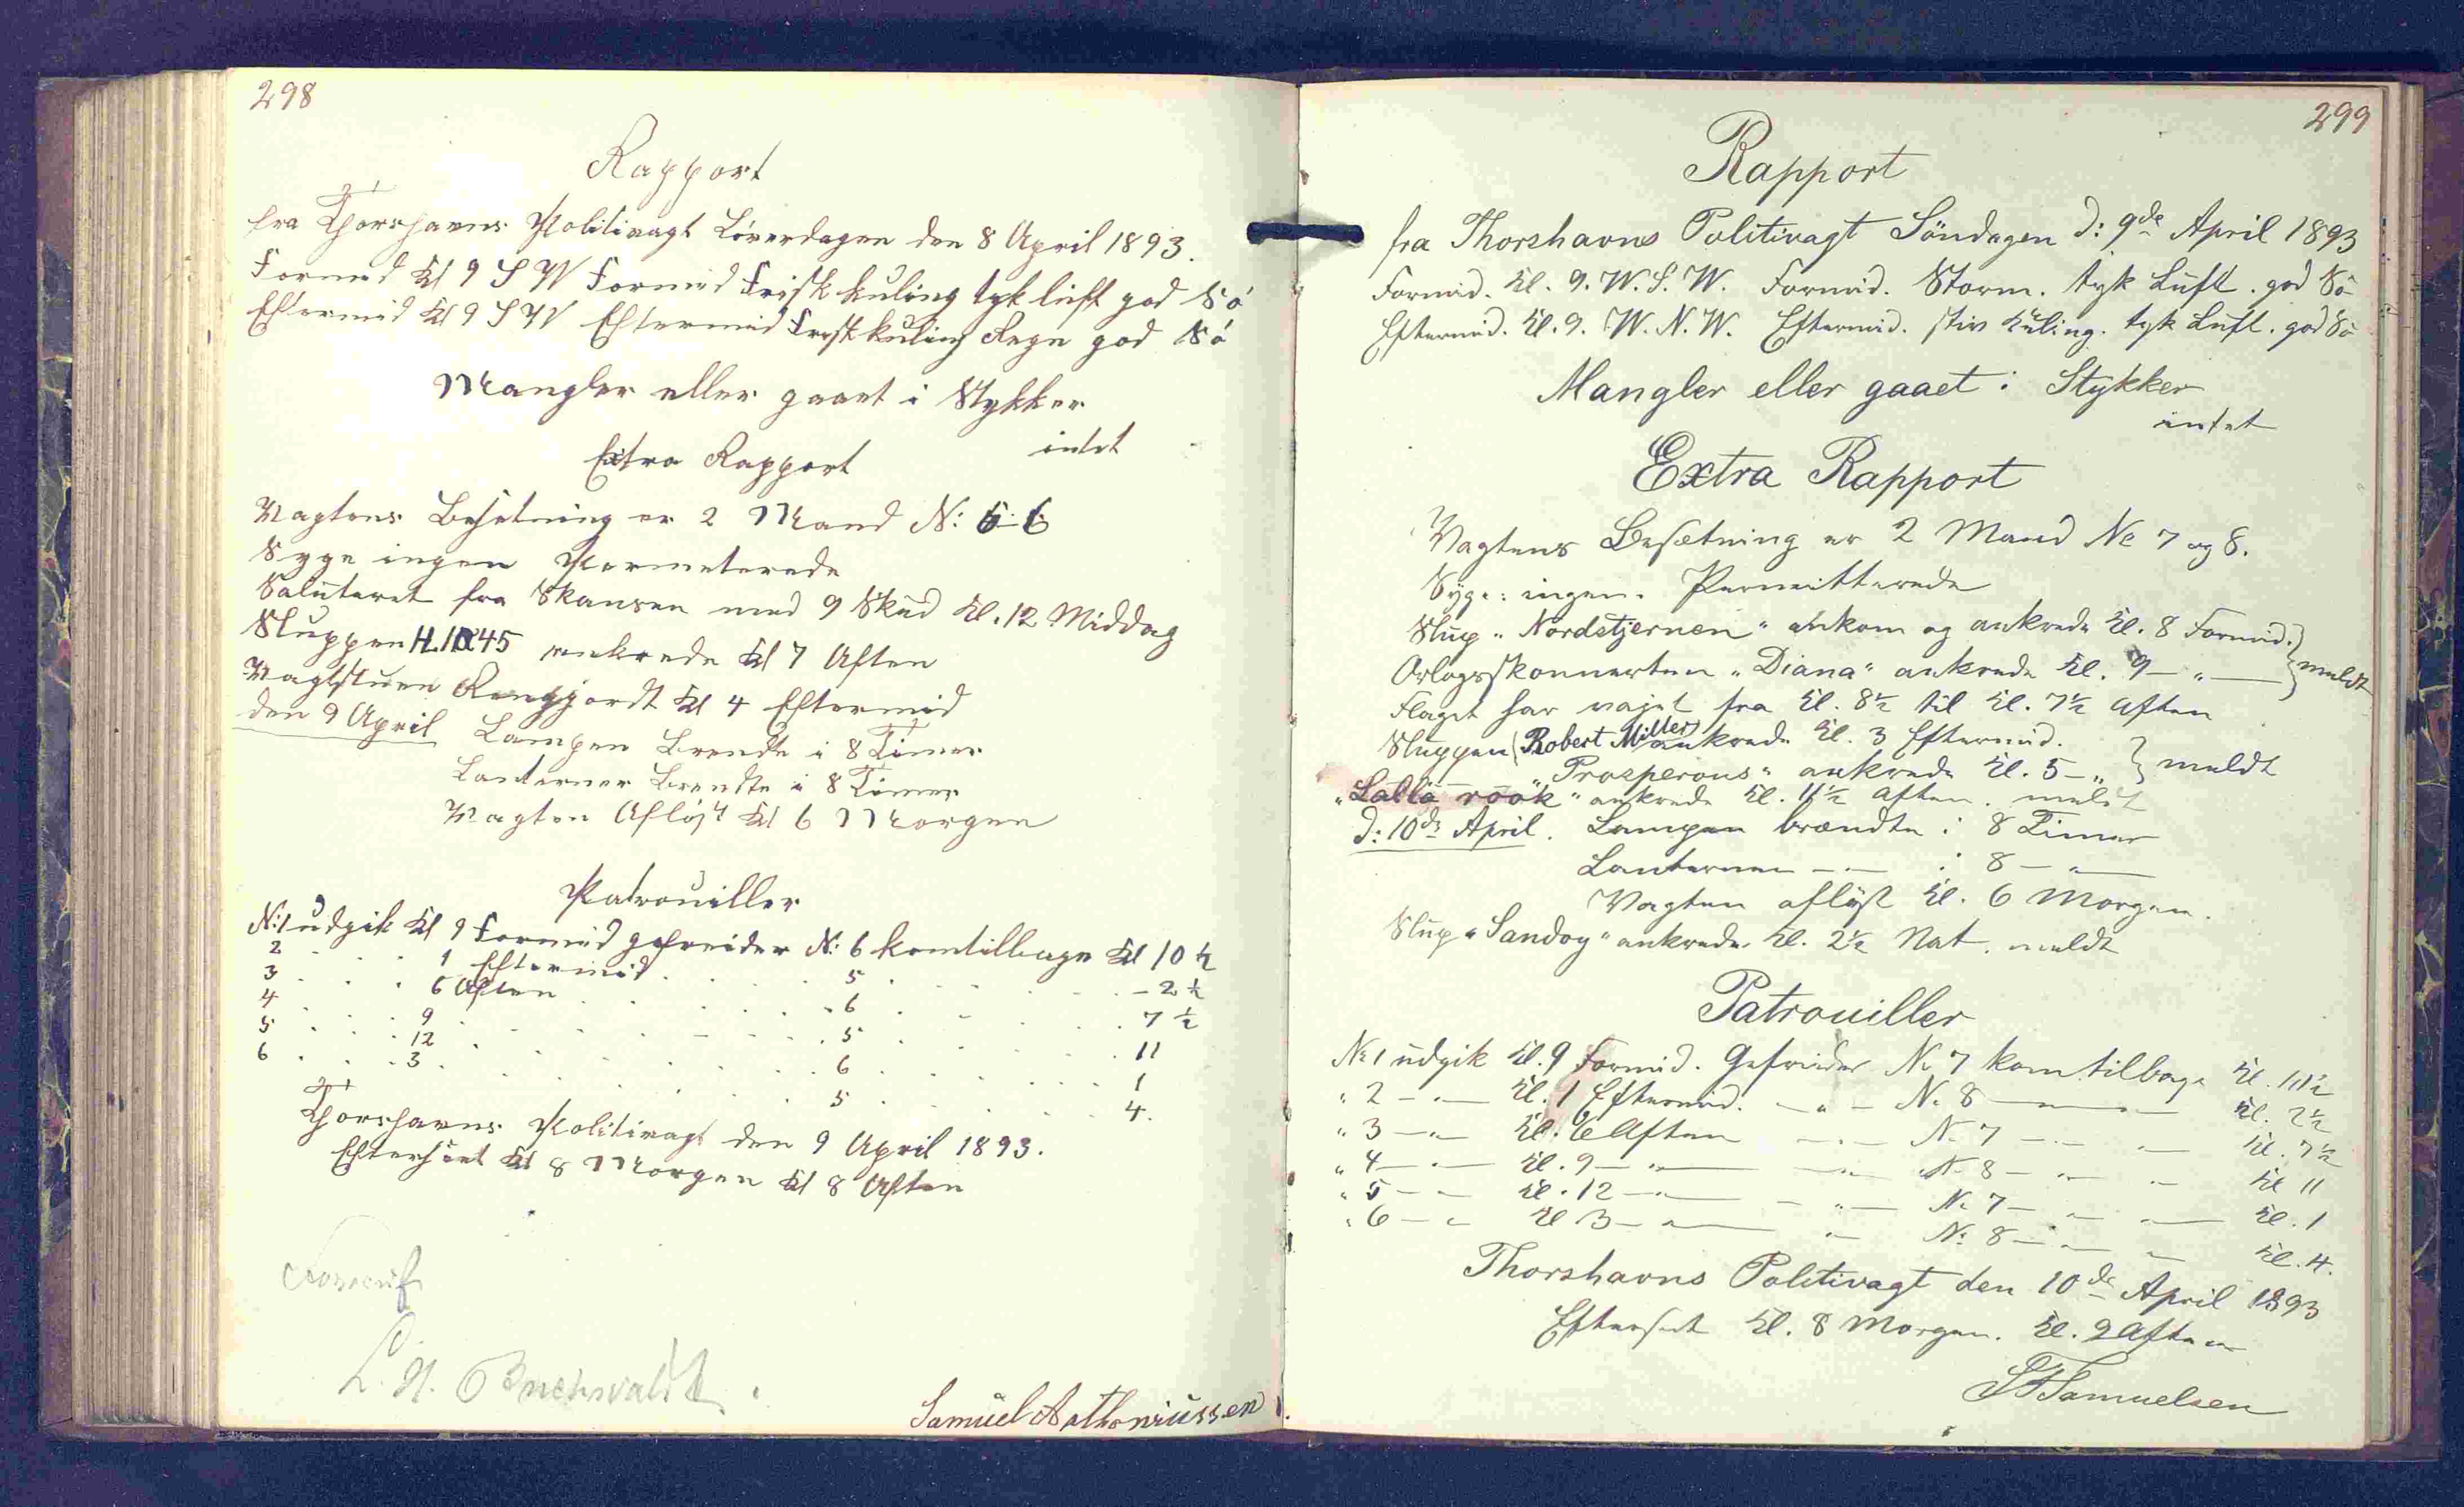 298
Rapport
fra Thorshavns Politivagt Löverdagen den 8 April 1893.
Formid Kl 9 S W Formid Frisk kuling tyk lúft god Sö
Eftermid Kl 9 S W Eftermid Frisk kuling Regn god Sö
Mangler eller gaaet i Stykker
intet
Extra Rapport
Vagtens Besetning er 2 Mand N: 5 6
Syge ingen Permeterede
Salúteret fra Skansen med 9 Skúd Kl. 12 Middag
Sluppen 45 ankrede Kl 7 Aften
Vagtstuen Rengjordt Kl 4 Eftermid
den 9 April Lampen Brendte i 8 Timer
Lanterner Brendte i 8 Timer
Vagten Aflöst Kl 6 Morgen
Patrouiller
N: 1 udgik Kl 9 Formid gefreider N: 6 kom tilbage Kl 10 ½
2 . . . 1 Eftermid . . . 5 . . . - 2 ½
3 . . . 6 Aften . . . 6 . . . 7 ½
4 . . . 9 . . . 5 . . . 11
5 . . . 12 . . . 6 . . . 1
6 . . . 3 . . . 5 . . . 4.
Thorshavns Politivagt den 9 April 1893.
Efterseet Kl 8 Morgen Kl 8 Aften
Samúel Anthoniússen
299
Rapport
fra Thorshavns Politivagt Söndagen d: 9de April 1893
Formid. Kl. 9. W. S. W. Formid. Storm. tyk Luft. god Sö
Eftermid. Kl. 9. W. N. W. Eftermid. stiv Kuling. tyk Luft. god Sö
Mangler eller gaaet i Stykker
intet
Extra Rapport
Vagtens Besætning er 2 Mand No 7 og 8.
Syge: ingen. Permitterede
Slup "Nordstjernen" ankom og ankrede Kl. 8 Formid. }
Orlogsskonnerten "Diana" ankrede Kl. 9 - " - } meldt
Flaget har vajet fra Kl. 8½ til Kl. 7½ Aften
Sluppen (Robert Miller) ankrede Kl. 3 Eftermid. }
"Prosperous" ankrede Kl. 5 - " } meldt
"Lalla rook" ankrede Kl. 11½ Aften. meldt
d: 10de April. Lampen brændte i 8 Timer
Lanternen - " - i 8 - " -
Vagten aflöst Kl. 6 Morgen.
Slup "Sandoy" ankrede Kl. 2½ Nat. meldt
Patrouiller
No 1 udgik Kl. 9 Formid. Gefreider No 7 kom tilbage Kl. 11½
" 2 - " - Kl. 1 Eftermid. - " - No 8 - " - Kl. 2½
" 3 - " - Kl. 6 Aften - " - No 7 - " - Kl. 7½
" 4 - " - Kl. 9 - " - No 8 - " - Kl 11
" 5 - " - Kl. 12 - " - No 7 - " - Kl. 1
" 6 - " - Kl 3 - " - No 8 - " - Kl. 4.
Thorshavns Politivagt den 10de April 1893
Efterseet Kl. 8 Morgen. Kl. 9 Aften
Samuelsen